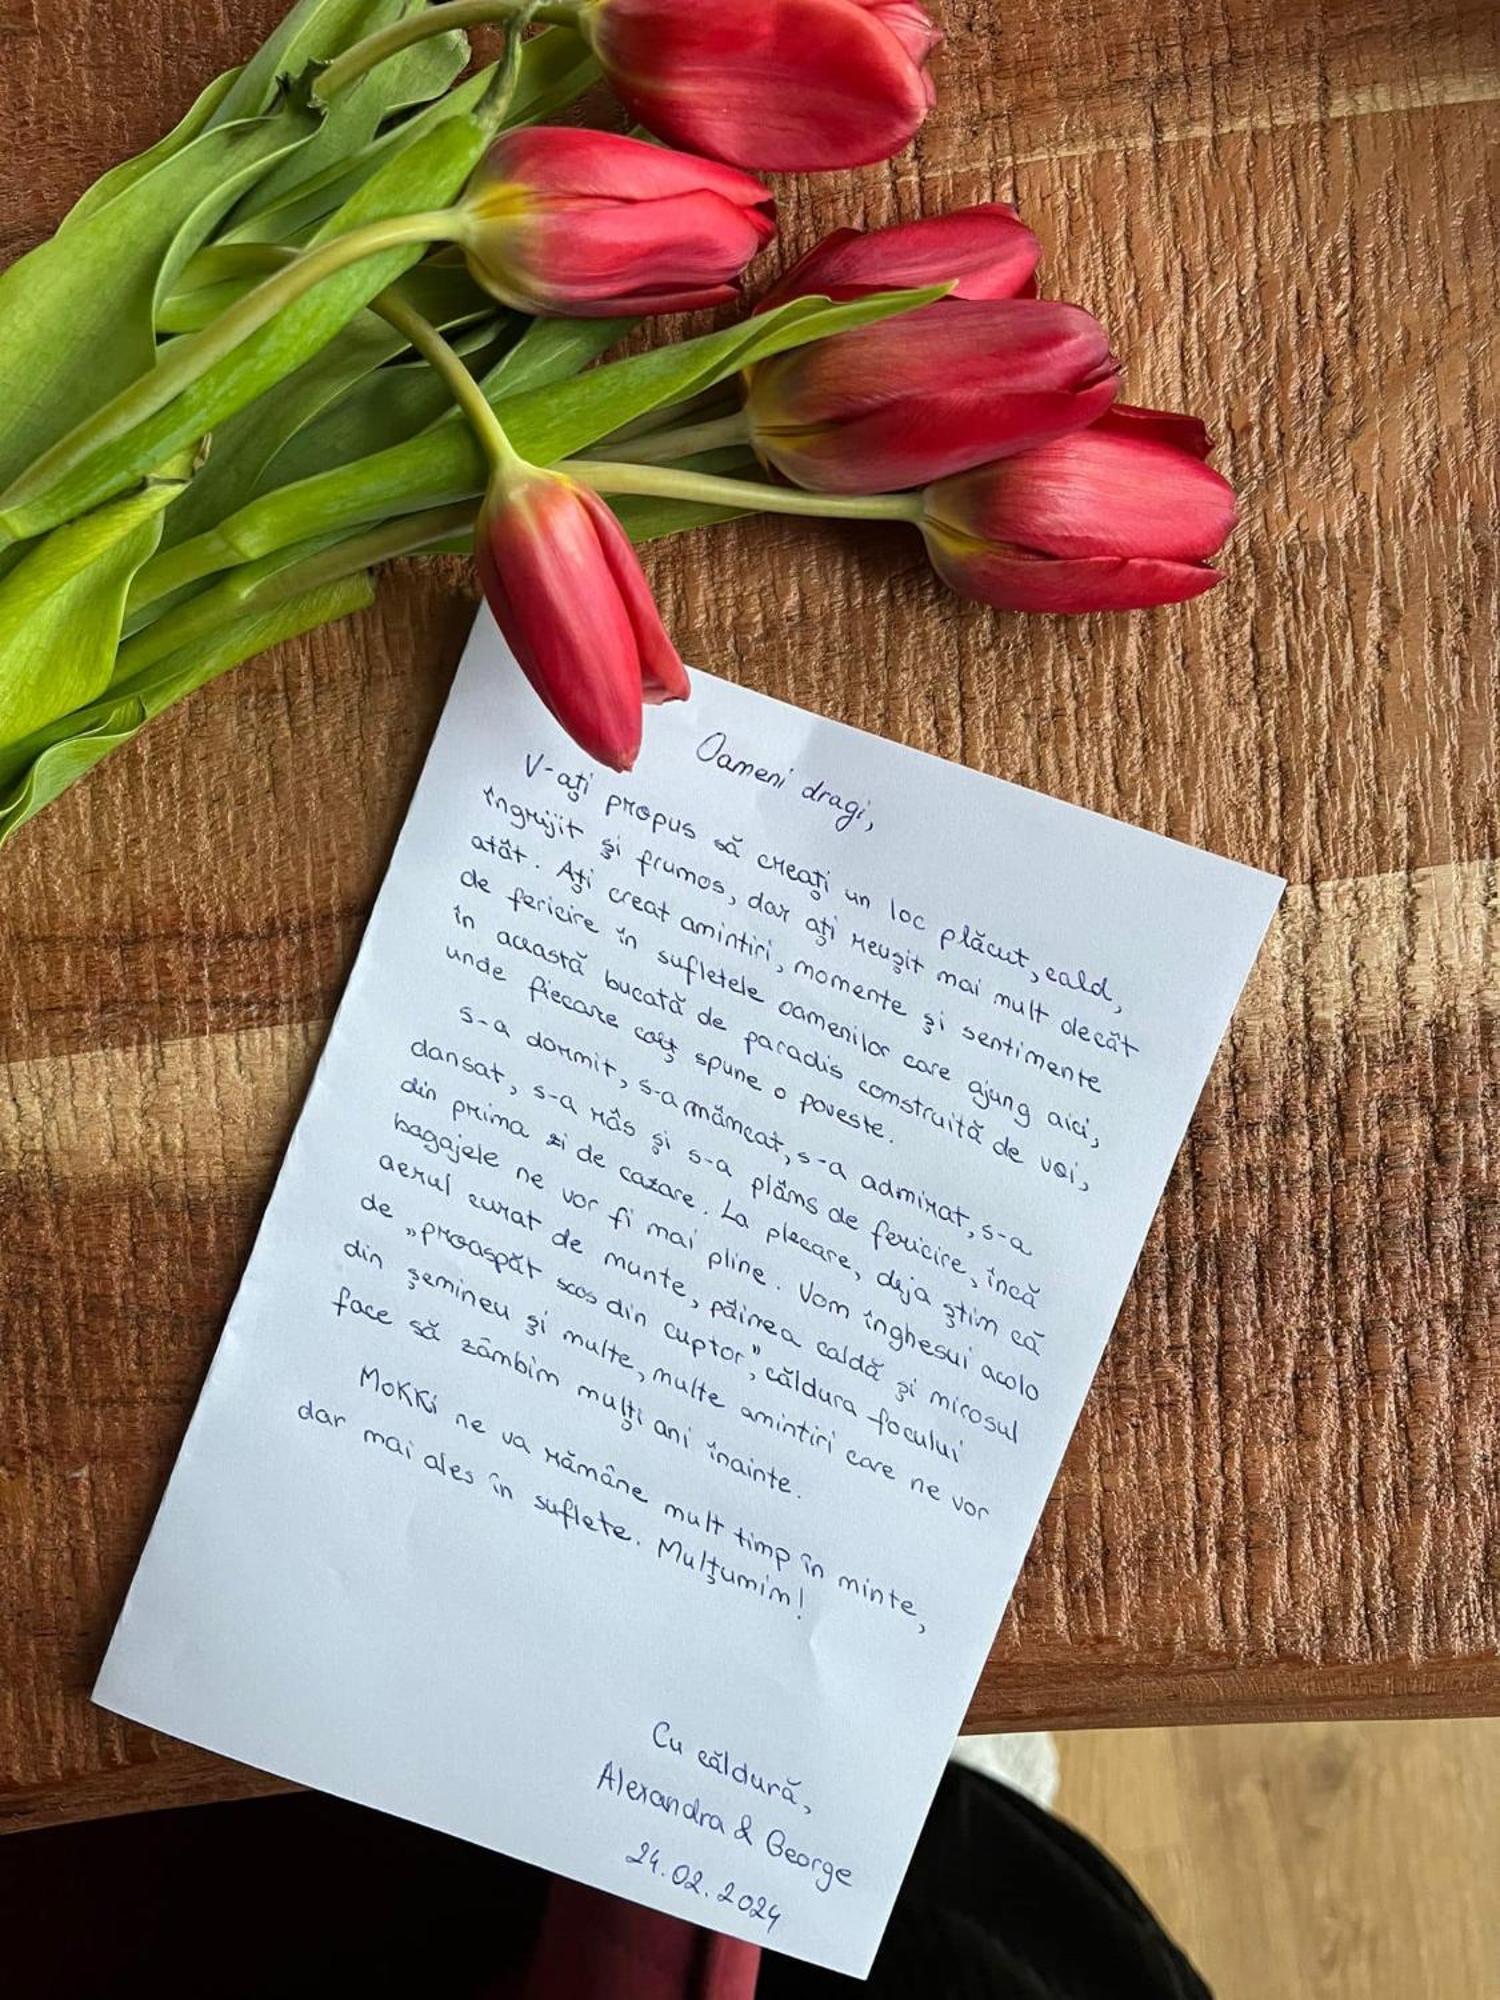 Oameni dragi,
V-ați propus să creați un loc plăcut, cald,
îngrijit și frumos, dar ați reușit mai mult decât
atât. Ați creat amintiri, momente și sentimente
de fericire în sufletele oamenilor care ajung aici,
în această bucată de paradis construită de voi,
unde fiecare colț spune o poveste.
S-a dormit, s-a mâncat, s-a admirat, s-a
dansat, s-a râs și s-a plâns de fericire, încă
din prima zi de cazare. La plecare, deja știm că
bagajele ne vor fi mai pline. Vom înghesui acolo
aerul curat de munte, pâinea caldă și mirosul
de „proaspăt scos din cuptor”, căldura focului
din șemineu și multe, multe amintiri care ne vor
face să zâmbim mulți ani înainte.
MOKKi ne va rămâne mult timp în minte,
dar mai ales în suflete. Mulțumim!
Cu căldură,
Alexandra & George
24.02.2024